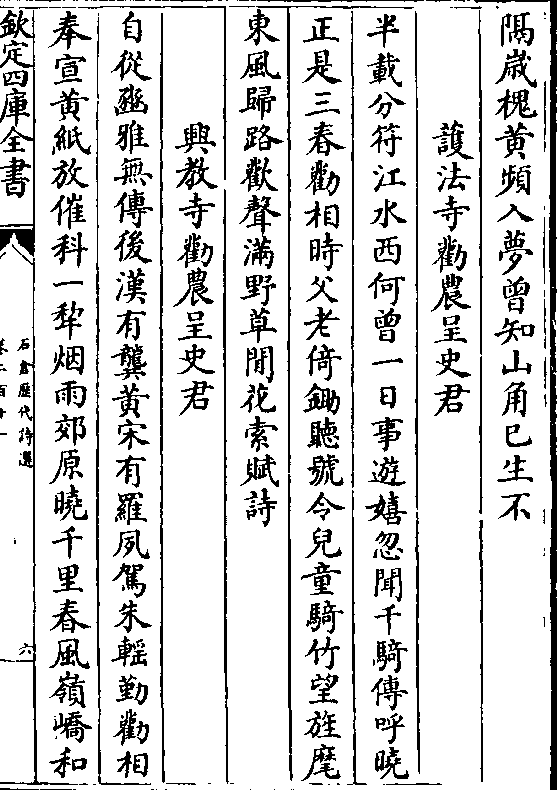 隅嵗槐黄頻入夢曾知山角巳生不
護法寺勸農呈史君
半載分符江水西何曾一日事遊嬉忽聞千騎傳呼曉
正是三春勸相時父老倚鋤聽號令兒童騎竹望旌麾
東風歸路歡聲滿野草閒花索賦詩
興教寺勸農呈史君
自從豳雅無傳後漢有龔黄宋有羅夙駕朱轓勤勸相
奉宣黄紙放催科一犂烟雨郊原曉千里春風嶺嶠和
欽定四庫全書
石倉歷代詩選
卷二百廿一
六